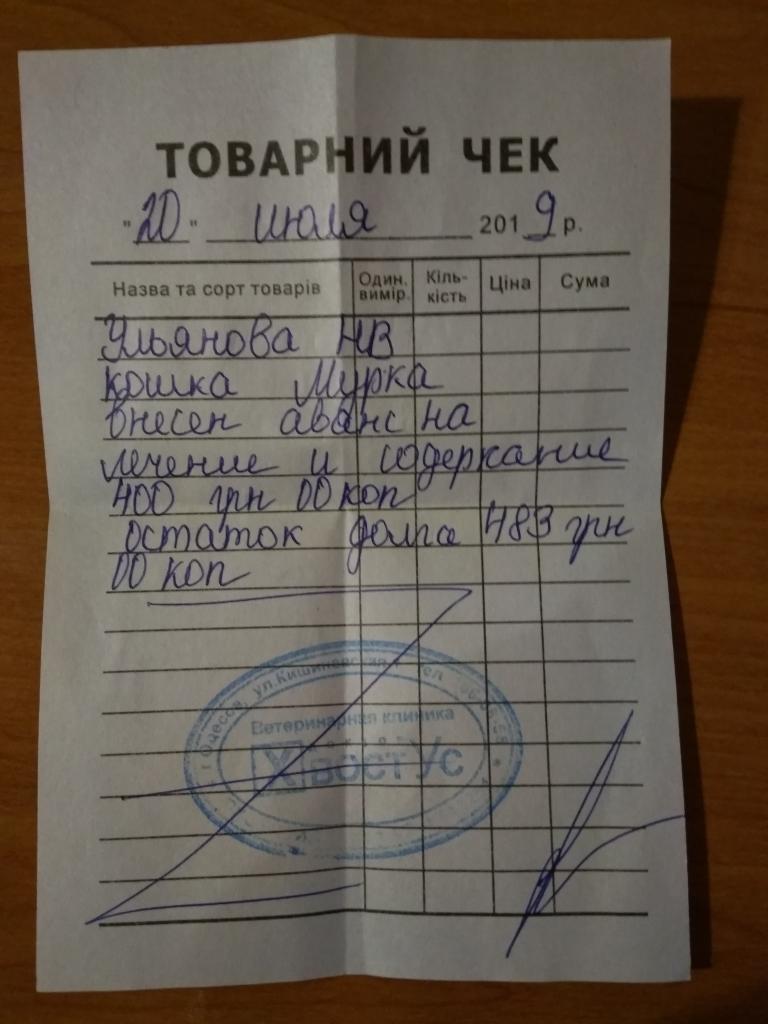 ТОВАРНИЙ ЧЕК
"20" июля 2019 р.
Назва та сорт товарів Один. вимір. Кіль-кість Ціна Сума
Ульянова НВ
кошка Мурка
внесен аванс на
лечение и содержание
400 грн 00 коп
остаток долга 483 грн
00 коп
г. Одесса, ул. Кишиневская
Ветеринарная клиника
ХвостУс